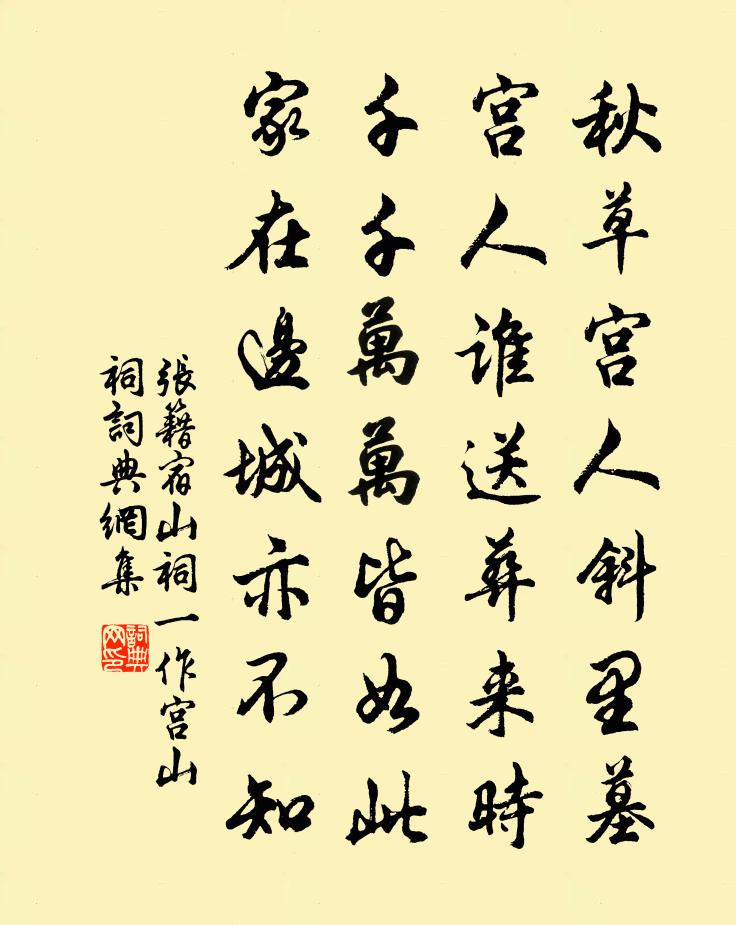 秋草宫人斜里墓
宫人誰送葬来時
千千萬萬皆如此
家在邊城亦不知
張籍宿山祠一作宫山
祠詞典網集
詞典
网印